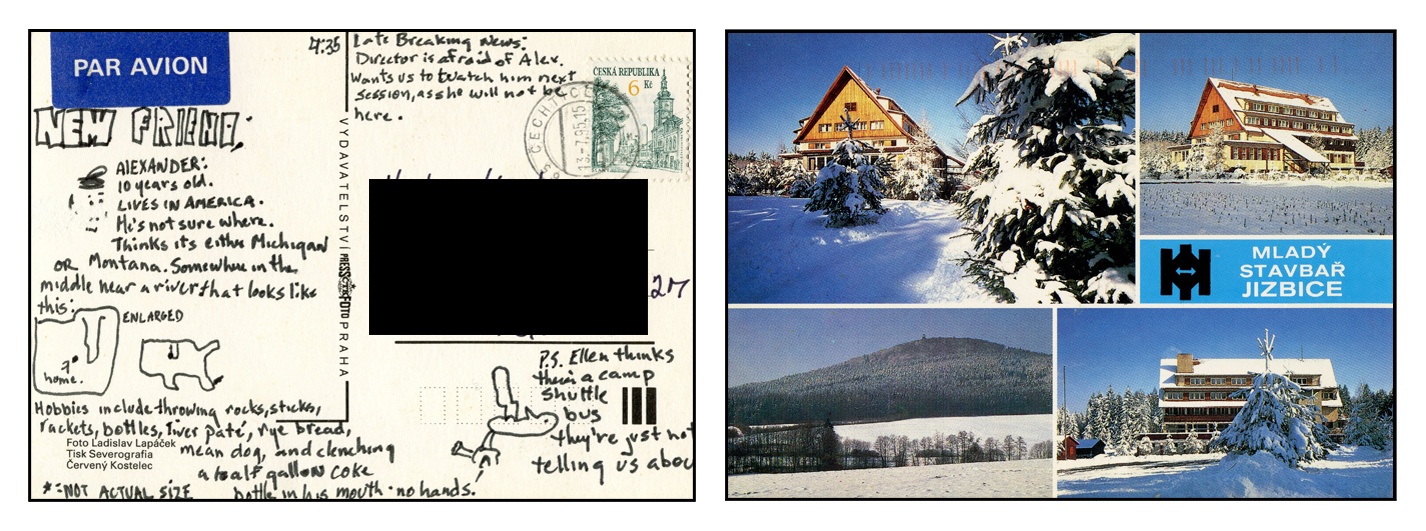 PAR AVION
4:35
NEW FRIEND:
ALEXANDER:
10 years old.
LIVES IN AMERICA.
He's not sure where.
Thinks its either Michigan
OR Montana. Somewhere in the
middle near a river that looks like
this:
ENLARGED
?
home.
Hobbies include throwing rocks, sticks,
rackets, bottles, liver paté, rye bread,
mean dog, and clenching
a half gallon coke
bottle in his mouth - no hands.
*=NOT ACTUAL SIZE
Foto Ladislav Lapáček
Tisk Severografia
Červený Kostelec
VYDAVATELSTVÍ PRESSFOTO PRAHA
Late Breaking News:
Director is afraid of Alex.
Wants us to watch him next
session, as she will not be
here.
ČESKÁ REPUBLIKA
6 Kč
ČECHTICE
13.-7.95.15
P.S. Ellen thinks
there's a camp
shuttle
bus
they're just not
telling us abou
MLADÝ
STAVBAŘ
JIZBICE